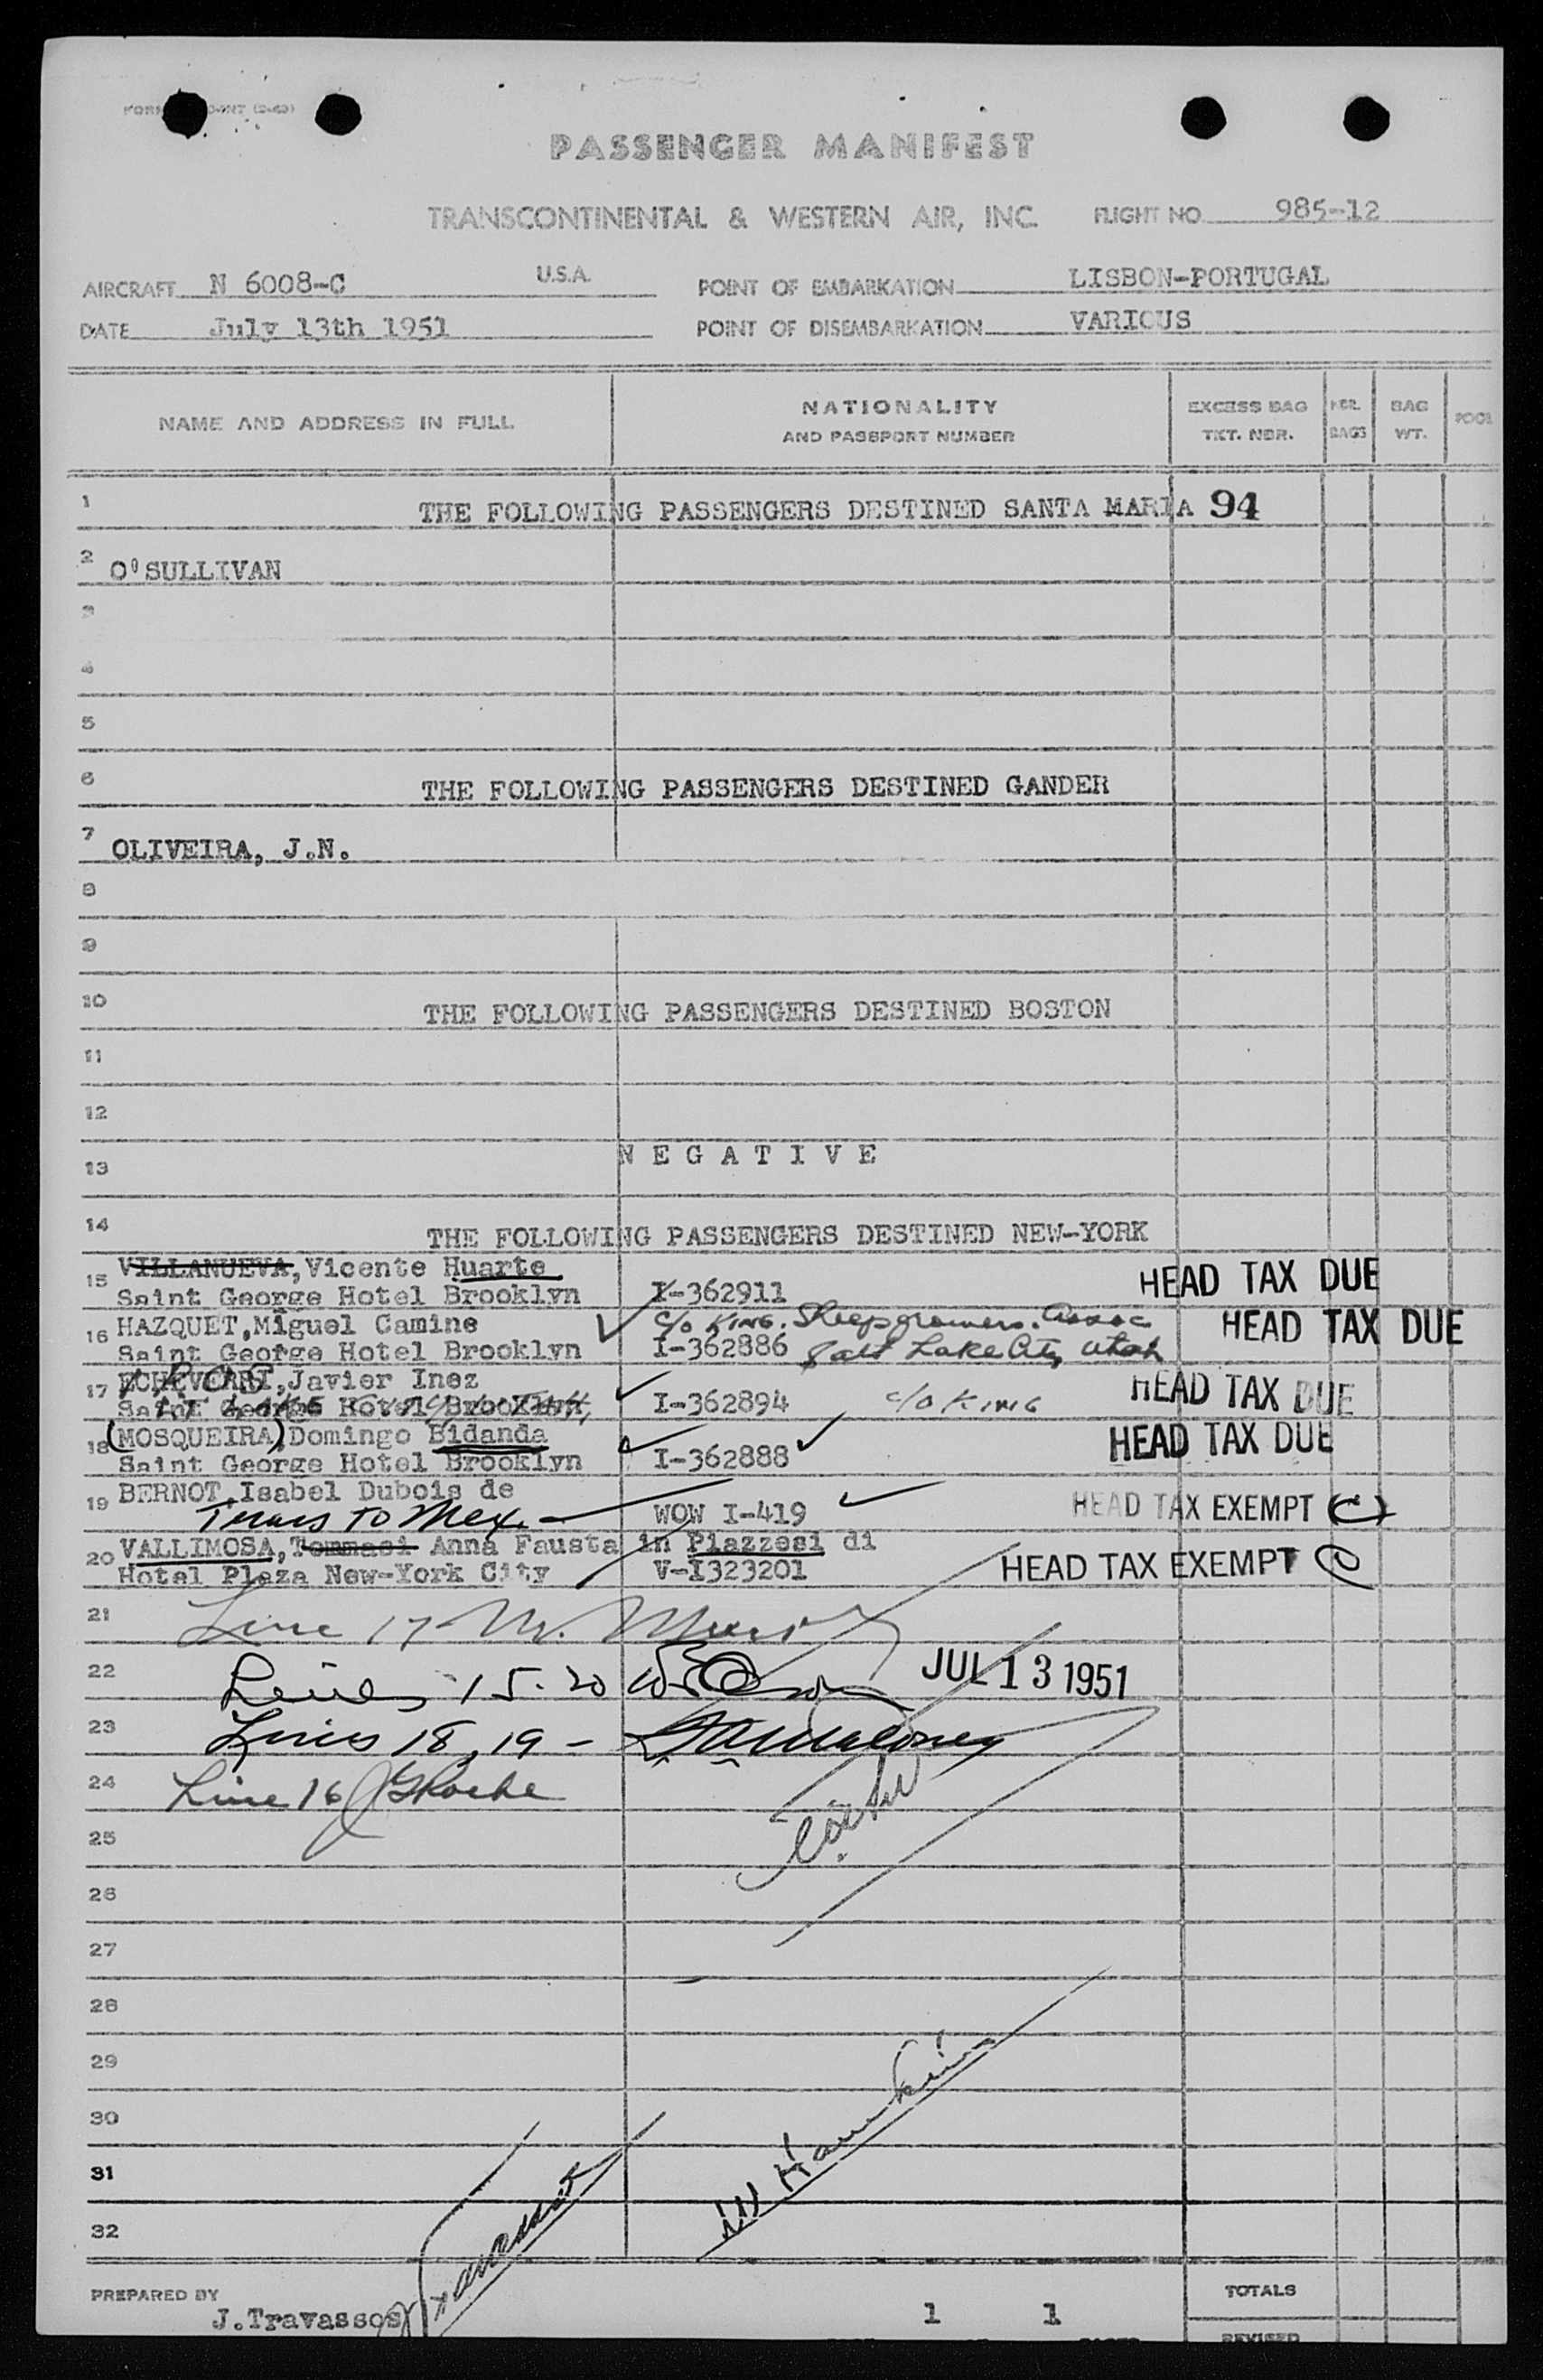 PASSENGER MANIFEST
TRANSCONTINENTAL & WESTERN AIR, INC. FLIGHT NO. 985-12
AIRCRAFT N 6008-C U.S.A. POINT OF EMBARKATION LISBON-PORTUGAL
DATE July 13th 1951 POINT OF DISEMBARKATION VARIOUS
NAME AND ADDRESS IN FULL NATIONALITY AND PASSPORT NUMBER EXCESS BAG TKT. NBR. NBR. BAGS BAG WT.
1 THE FOLLOWING PASSENGERS DESTINED SANTA MARIA 94
2 O'SULLIVAN
3
4
5
6 THE FOLLOWING PASSENGERS DESTINED GANDER
7 OLIVEIRA, J.N.
8
9
10 THE FOLLOWING PASSENGERS DESTINED BOSTON
11
12
13 N E G A T I V E
14 THE FOLLOWING PASSENGERS DESTINED NEW-YORK
15 VILLANUEVA, Vicente Huarte
Saint George Hotel Brooklyn I-362911 HEAD TAX DUE
16 HAZQUET, Miguel Camine c/o KING. Sheepgrowers. Assoc HEAD TAX DUE
Saint George Hotel Brooklyn I-362886 Salt Lake City Utah
17 ECHEVERRI, Javier Inez
Saint George Hotel Brooklyn I-362894 c/o KING HEAD TAX DUE
18 (MOSQUEIRA) Domingo Bidanda
Saint George Hotel Brooklyn I-362888 HEAD TAX DUE
19 BERNOT, Isabel Dubois de
Trans to Mex. WOW I-419 HEAD TAX EXEMPT
20 VALLIMOSA, Tommasi Anna Fausta in Piazzesi di
Hotel Plaza New-York City V-I323201 HEAD TAX EXEMPT
21 Line 17
22 Lines 15-20 JUL 13 1951
23 Lines 18, 19 -
24 Line 16
25
26
27
28
29
30
31
32
PREPARED BY J.Travassos 1 1 TOTALS
REVISED